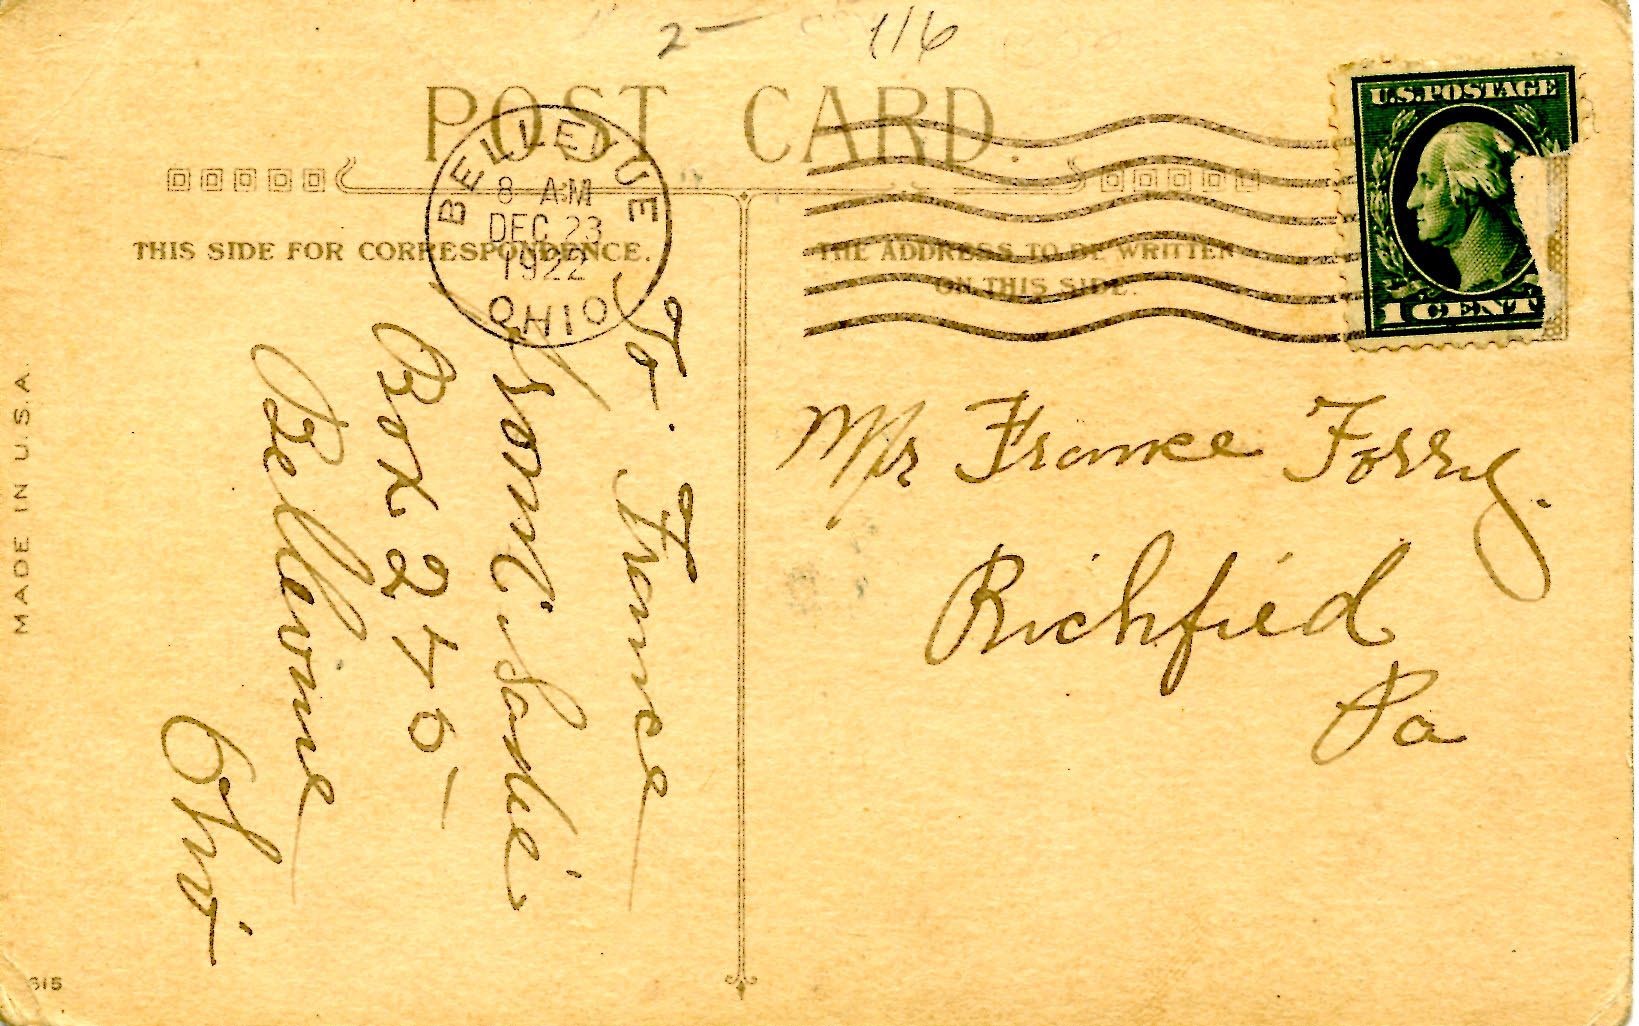 2- 116
POST CARD.
BELLEVUE
8 AM
DEC 23
1922
OHIO
U.S. POSTAGE
1 CENT
THIS SIDE FOR CORRESPONDENCE.
THE ADDRESS TO BE WRITTEN
ON THIS SIDE.
To. France
from Sadie
Box 245-
Bellevue
Ohio
Mr France Forry.
Richfied
Pa
MADE IN U.S.A.
615